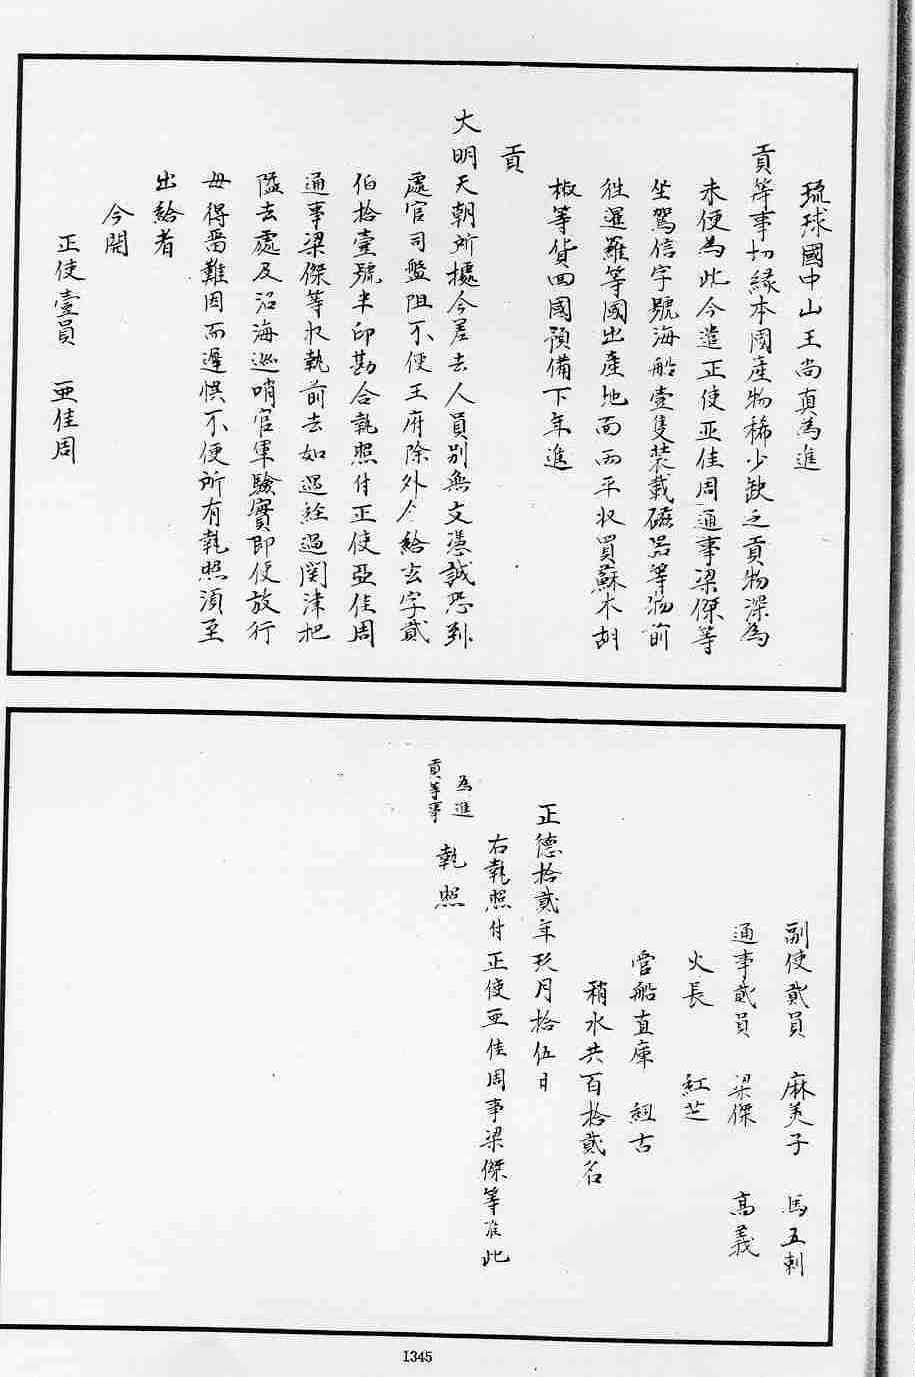 琉球國中山王尚真為進
貢等事切縁本國產物稀少缺乏貢物深為
未便為此今遣正使亞佳周通事梁傑等
坐駕信字號海船壹隻裝載磁器等物前
徃暹羅等國出產地面兩平收買蘇木胡
椒等貨回國預備下年進
貢
大明天朝所據今差去人員別無文憑誠恐到
處官司盤阻不便王府除外今給玄字貳
伯拾壹號半印勘合執照付正使亞佳周
通事梁傑等收執前去如遇經過関津把
隘去處及沿海巡哨官軍驗實即便放行
毋得留難因而遲悞不便所有執照須至
出給者
今開
正使壹員 亜佳周
副使貳員 麻美子 馬五刺
通事貳員 梁傑 高義
火長 紅芝
管船直庫 組古
稍水共百拾貳名
正德拾貳年玖月拾伍日
右執照付正使亜佳周事梁傑等准此
為進
貢等事
執照
1345